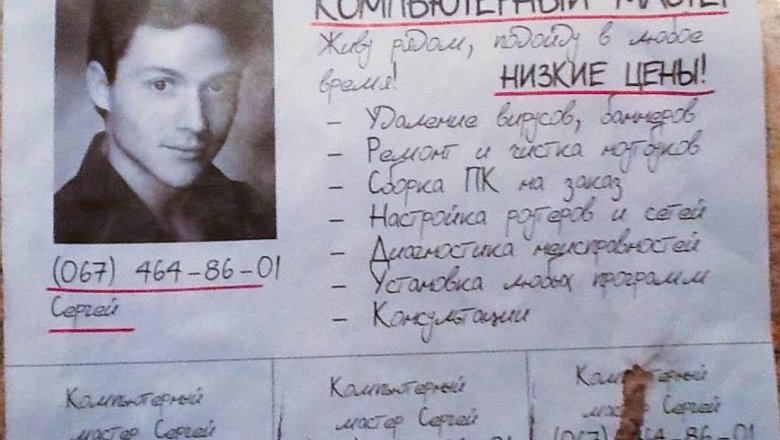 КОМПЬЮТЕРНЫЙ МАСТЕР
Живу рядом, подойду в любое
время! НИЗКИЕ ЦЕНЫ!
– Удаление вирусов, баннеров
– Ремонт и чистка ноутбуков
– Сборка ПК на заказ
– Настройка роутеров и сетей
– Диагностика неисправностей
– Установка любых программ
– Консультации
(067) 464-86-01
Сергей
Компьютерный
мастер Сергей
Компьютерный
мастер Сергей
(067) 464-86-01
Компьютерный
мастер Сергей
(067) 464-86-01